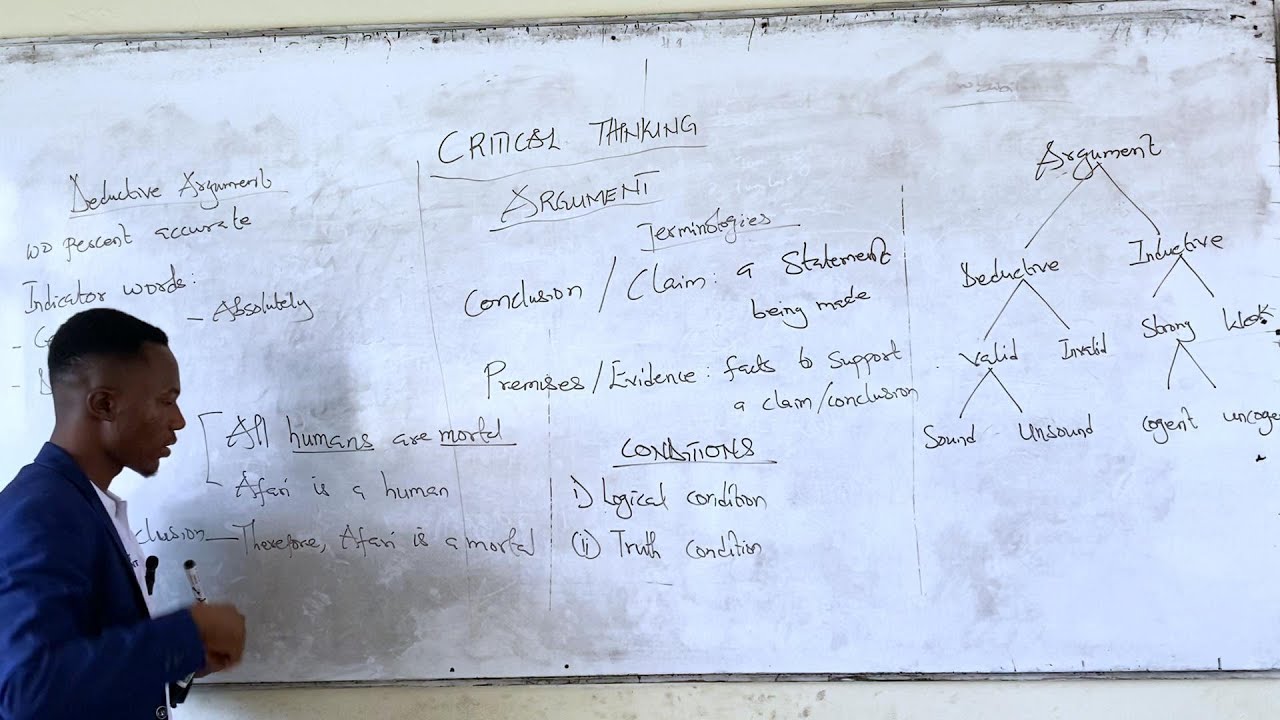 CRITICAL THINKING
ARGUMENT
Deductive Argument
100 percent accurate
Indicator words:
- Absolutely
All humans are mortal
Afari is a human
Therefore, Afari is a mortal
Terminologies
Conclusion / Claim: a statement
being made
Premises/Evidence: facts to support
a claim/conclusion
CONDITIONS
i) Logical condition
(ii) Truth condition
Argument
Deductive Inductive
Valid Invalid Strong Weak
Sound Unsound cogent